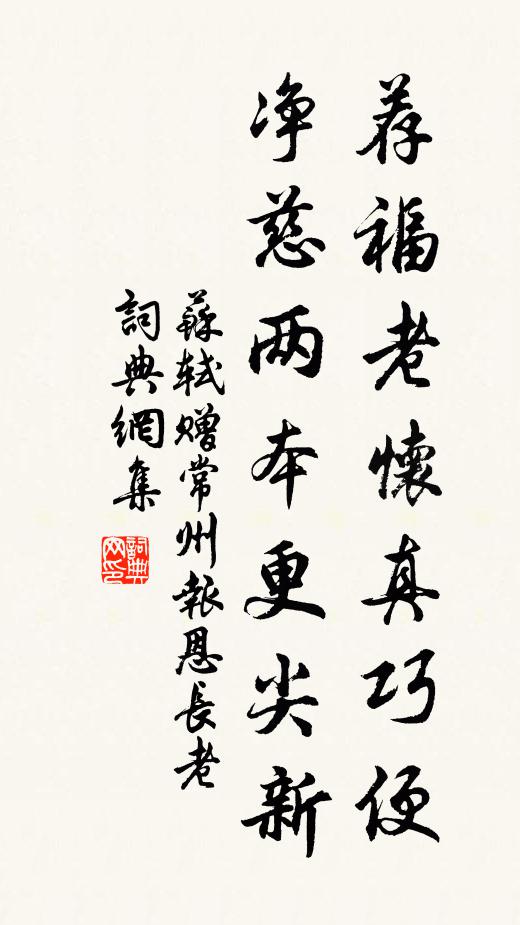 荐福老懷真巧便
净慈两本更尖新
蘇軾赠常州報恩長老
詞典網集
詞典网印